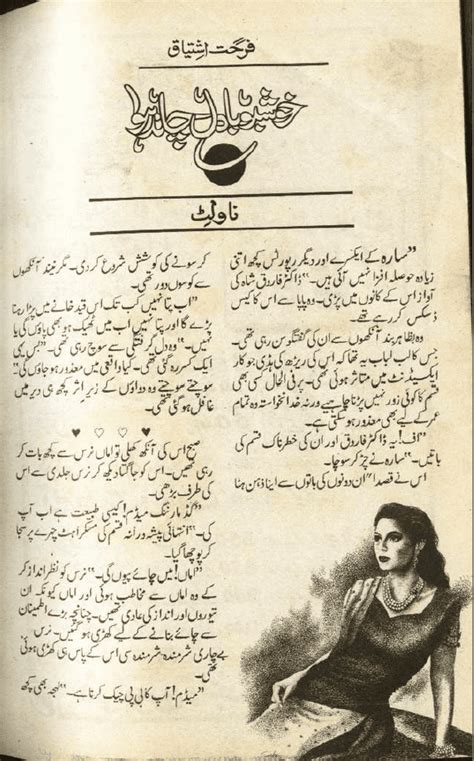 فرحت اشتیاق
خوشبو بادل چاند ہوا
ناولٹ
”سارہ کے ایکسرے اور دیگر رپورٹس کچھ اتنی
زیادہ حوصلہ افزا نہیں آئی ہیں۔“ ڈاکٹر فاروق شاہ کی
آواز اس کے کانوں میں پڑی۔ وہ پاپا سے اس کا کیس
ڈسکس کر رہے تھے۔
وہ بظاہر بند آنکھوں سے ان کی گفتگو سن رہی تھی۔
جس کا لب لباب یہ تھا کہ اس کی ریڑھ کی ہڈی جو کار
ایکسیڈنٹ میں متاثر ہوئی تھی۔ اس پر فی الحال کسی بھی
قسم کا کوئی زور نہیں پڑنا چاہیے ورنہ خدانخواستہ وہ تمام
عمر کے لیے بھی معذور ہو سکتی ہے۔
”اف! یہ ڈاکٹر فاروق اور ان کی خطرناک قسم کی
باتیں۔“ سارہ نے چڑ کر سوچا۔
اس نے قصدا“ ان دونوں کی باتوں سے اپنا ذہن ہٹا
کر سونے کی کوشش شروع کر دی۔ مگر نیند آنکھوں
سے کوسوں دور تھی۔
”اب پتا نہیں کب تک اس قید خانے میں پڑا رہنا
پڑے گا اور پتا نہیں اب میں ٹھیک ہو بھی پاؤں گی یا
نہیں۔“ وہ دل گرفتگی سے سوچ رہی تھی۔ ”بس یہی
ایک کسر رہ گئی تھی۔ کیا واقعی میں معذور ہو جاؤں گی“
سوچتے سوچتے وہ دواؤں کے زیر اثر کچھ ہی دیر میں
غافل ہو گئی تھی۔
صبح اس کی آنکھ کھلی تو اماں نرس سے کچھ بات کر
رہی تھیں۔ اس کو جاگتا دیکھ کر نرس جلدی سے اس
کی طرف بڑھی۔
”گڈ مارننگ میڈم! کیسی طبیعت ہے اب آپ
کی۔“ انتہائی پیشہ ورانہ قسم کی مسکراہٹ چہرے پر سجا
کر پوچھا گیا۔
”اماں! میں چائے پیوں گی۔“ نرس کو نظر انداز کر
کے وہ اماں سے مخاطب ہوئی اور اماں کیونکہ ان
تیوروں اور انداز کی عادی تھیں۔ چنانچہ بڑے اطمینان
سے چائے بنانے کے لیے کھڑی ہو گئیں۔ نرس
بے چاری شرمندہ، شرمندہ سی اس کے پاس ہی کھڑی ہوئی
تھی۔
”میڈم! آپ کا بی پی چیک کرنا ہے۔“ لہجہ بھی کچھ